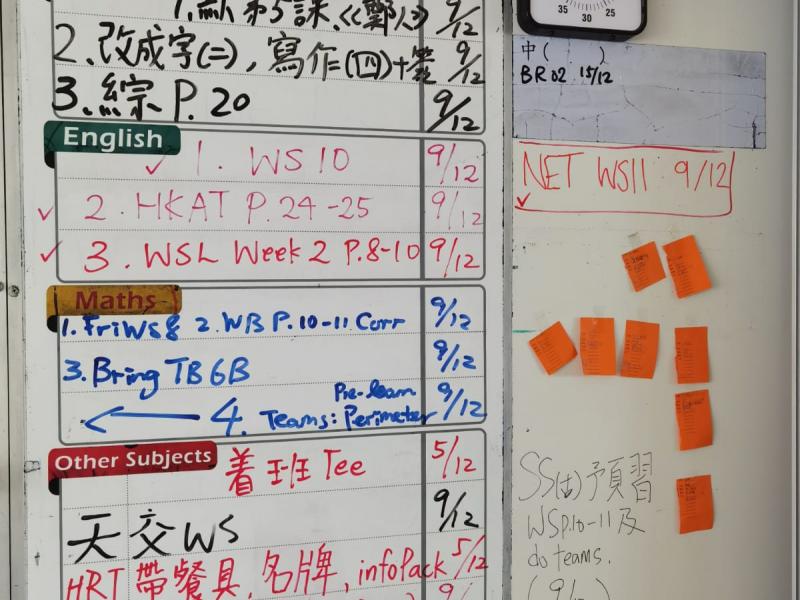 第5課,《鄭人》 9/12
2.改成字(二),寫作(四)+簽 9/12
3.綜 P.20 9/12
English
✓ 1. WS 10 9/12
✓ 2. HKAT P.24-25 9/12
✓ 3. WSL Week 2 P.8-10 9/12
Maths
1. Fri WS 8 2. WB P.10-11 Corr 9/12
3. Bring TB 6B 9/12
Pre-learn
← 4. Teams: Perimeter 9/12
Other Subjects
着班 Tee 5/12
天交 WS 9/12
HRT 帶餐具,名牌,infoPack 5/12
35 30 25
中( )
BR02 15/12
NET WS11 9/12
✓
SS(古)預習
WS P.10-11 及
do teams.
(9/